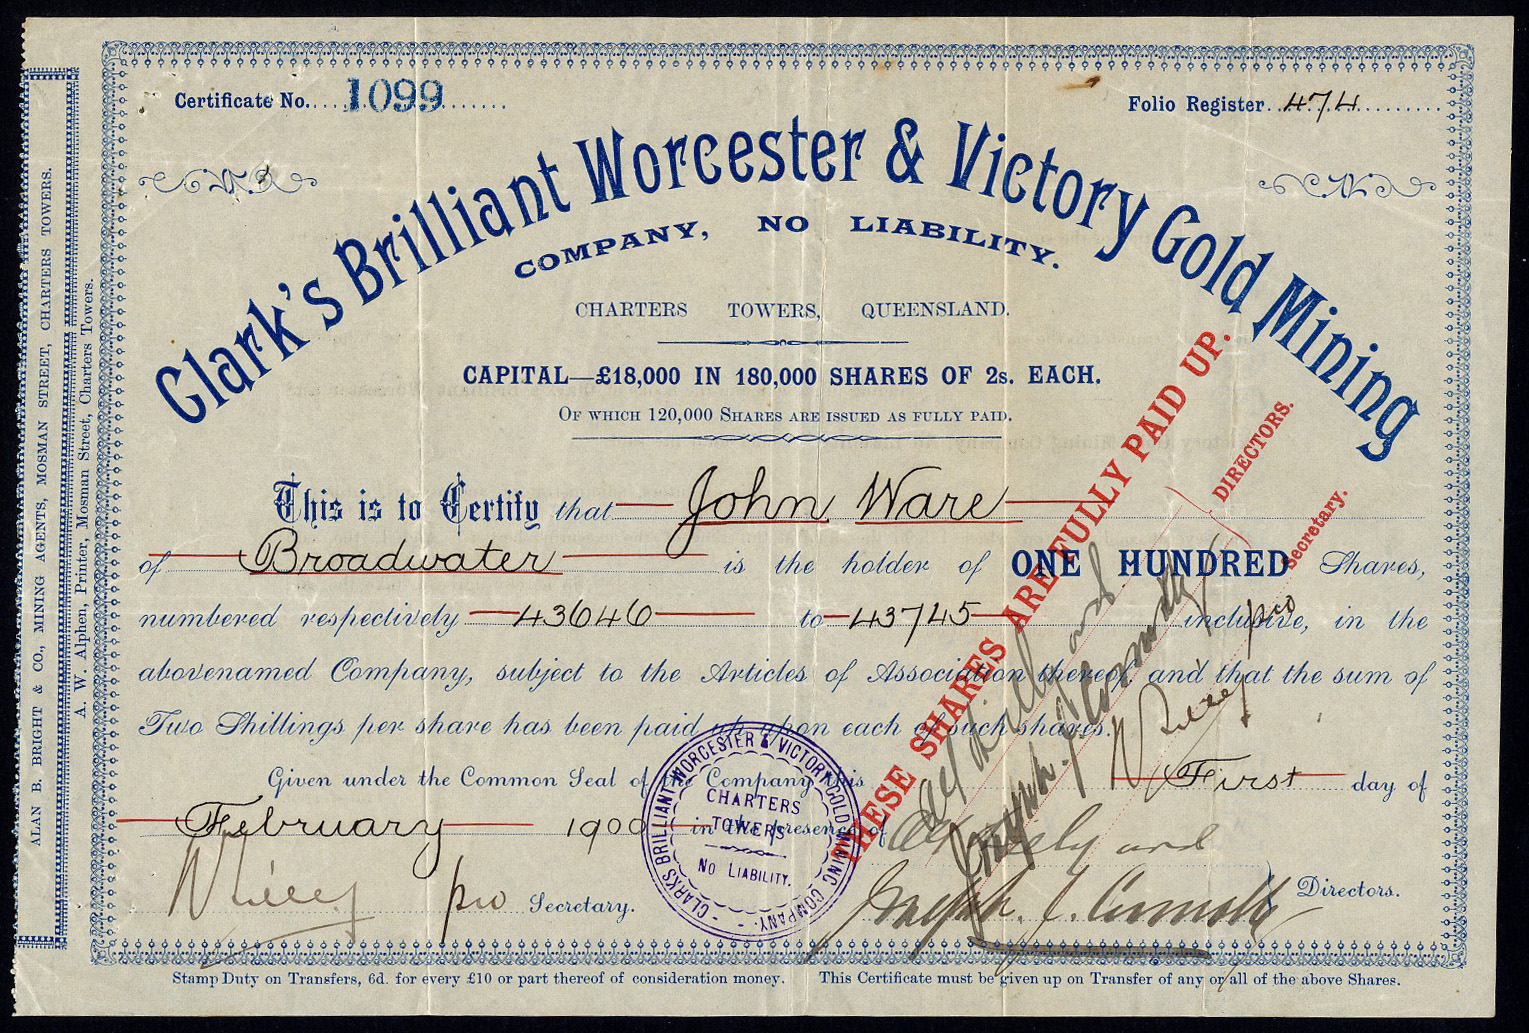 Certificate No. 1099
Folio Register 474
Clark's Brilliant Worcester & Victory Gold Mining
COMPANY, NO LIABILITY.
CHARTERS TOWERS, QUEENSLAND.
CAPITAL—£18,000 IN 180,000 SHARES OF 2s. EACH.
OF WHICH 120,000 SHARES ARE ISSUED AS FULLY PAID.
This is to Certify that John Ware
of Broadwater is the holder of ONE HUNDRED Shares,
numbered respectively 43646 to 43745 inclusive, in the
abovenamed Company, subject to the Articles of Association thereof, and that the sum of
Two Shillings per share has been paid up upon each of such shares.
Given under the Common Seal of the Company this First day of
February 1900 in the presence of
pro Secretary.
Directors.
THESE SHARES ARE FULLY PAID UP.
DIRECTORS.
Secretary.
pro
CLARKS BRILLIANT WORCESTER & VICTORY GOLD MINING COMPANY.
CHARTERS
TOWERS
NO LIABILITY.
Stamp Duty on Transfers, 6d. for every £10 or part thereof of consideration money. This Certificate must be given up on Transfer of any or all of the above Shares.
ALAN B. BRIGHT & CO., MINING AGENTS, MOSMAN STREET, CHARTERS TOWERS.
A. W. Alphen, Printer, Mosman Street, Charters Towers.